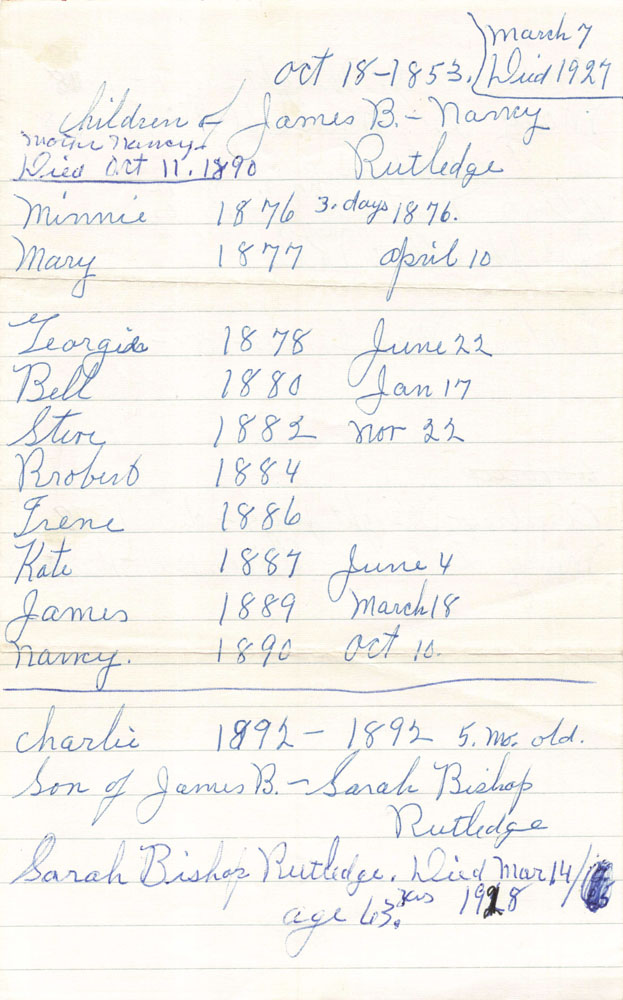 March 7
Oct 18-1853. Died 1927
Children of James B. - Nancy
Rutledge
Mother Nancy
Died Oct 11. 1890
Minnie 1876 3. days 1876.
Mary 1877 April 10
Georgia 1878 June 22
Bell 1880 Jan 17
Steve 1882 Nov 22
Robert 1884
Irene 1886
Kate 1887 June 4
James 1889 March 18
Nancy. 1890 Oct 10.
Charlie 1892 - 1892 5. mo. old.
Son of James B. - Sarah Bishop
Rutledge
Sarah Bishop Rutledge. Died Mar 14/
age 63. yrs 1928